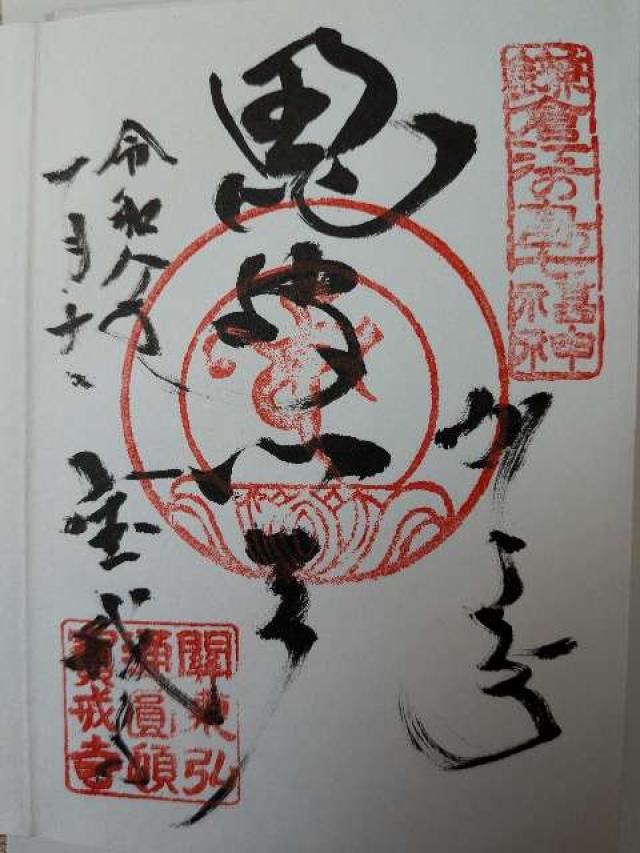 鎌倉江の島七福神
毘沙門天
令和八年
一月
宝戒寺
關東弘
通圓頓
寶戒寺